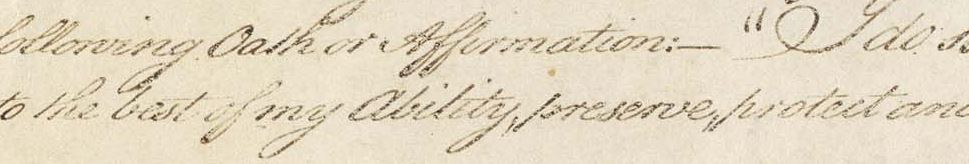 following Oath or Affirmation:— "I do
to the best of my Ability, preserve, protect and